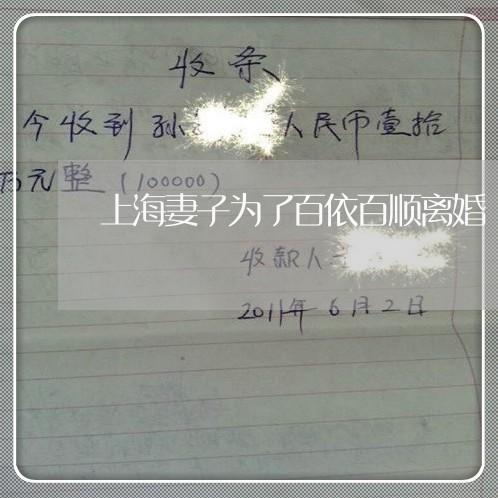 收条
今收到孙 人民币壹拾
万元整（100000）
上海妻子为了百依百顺离婚
收款人
2011年6月2日